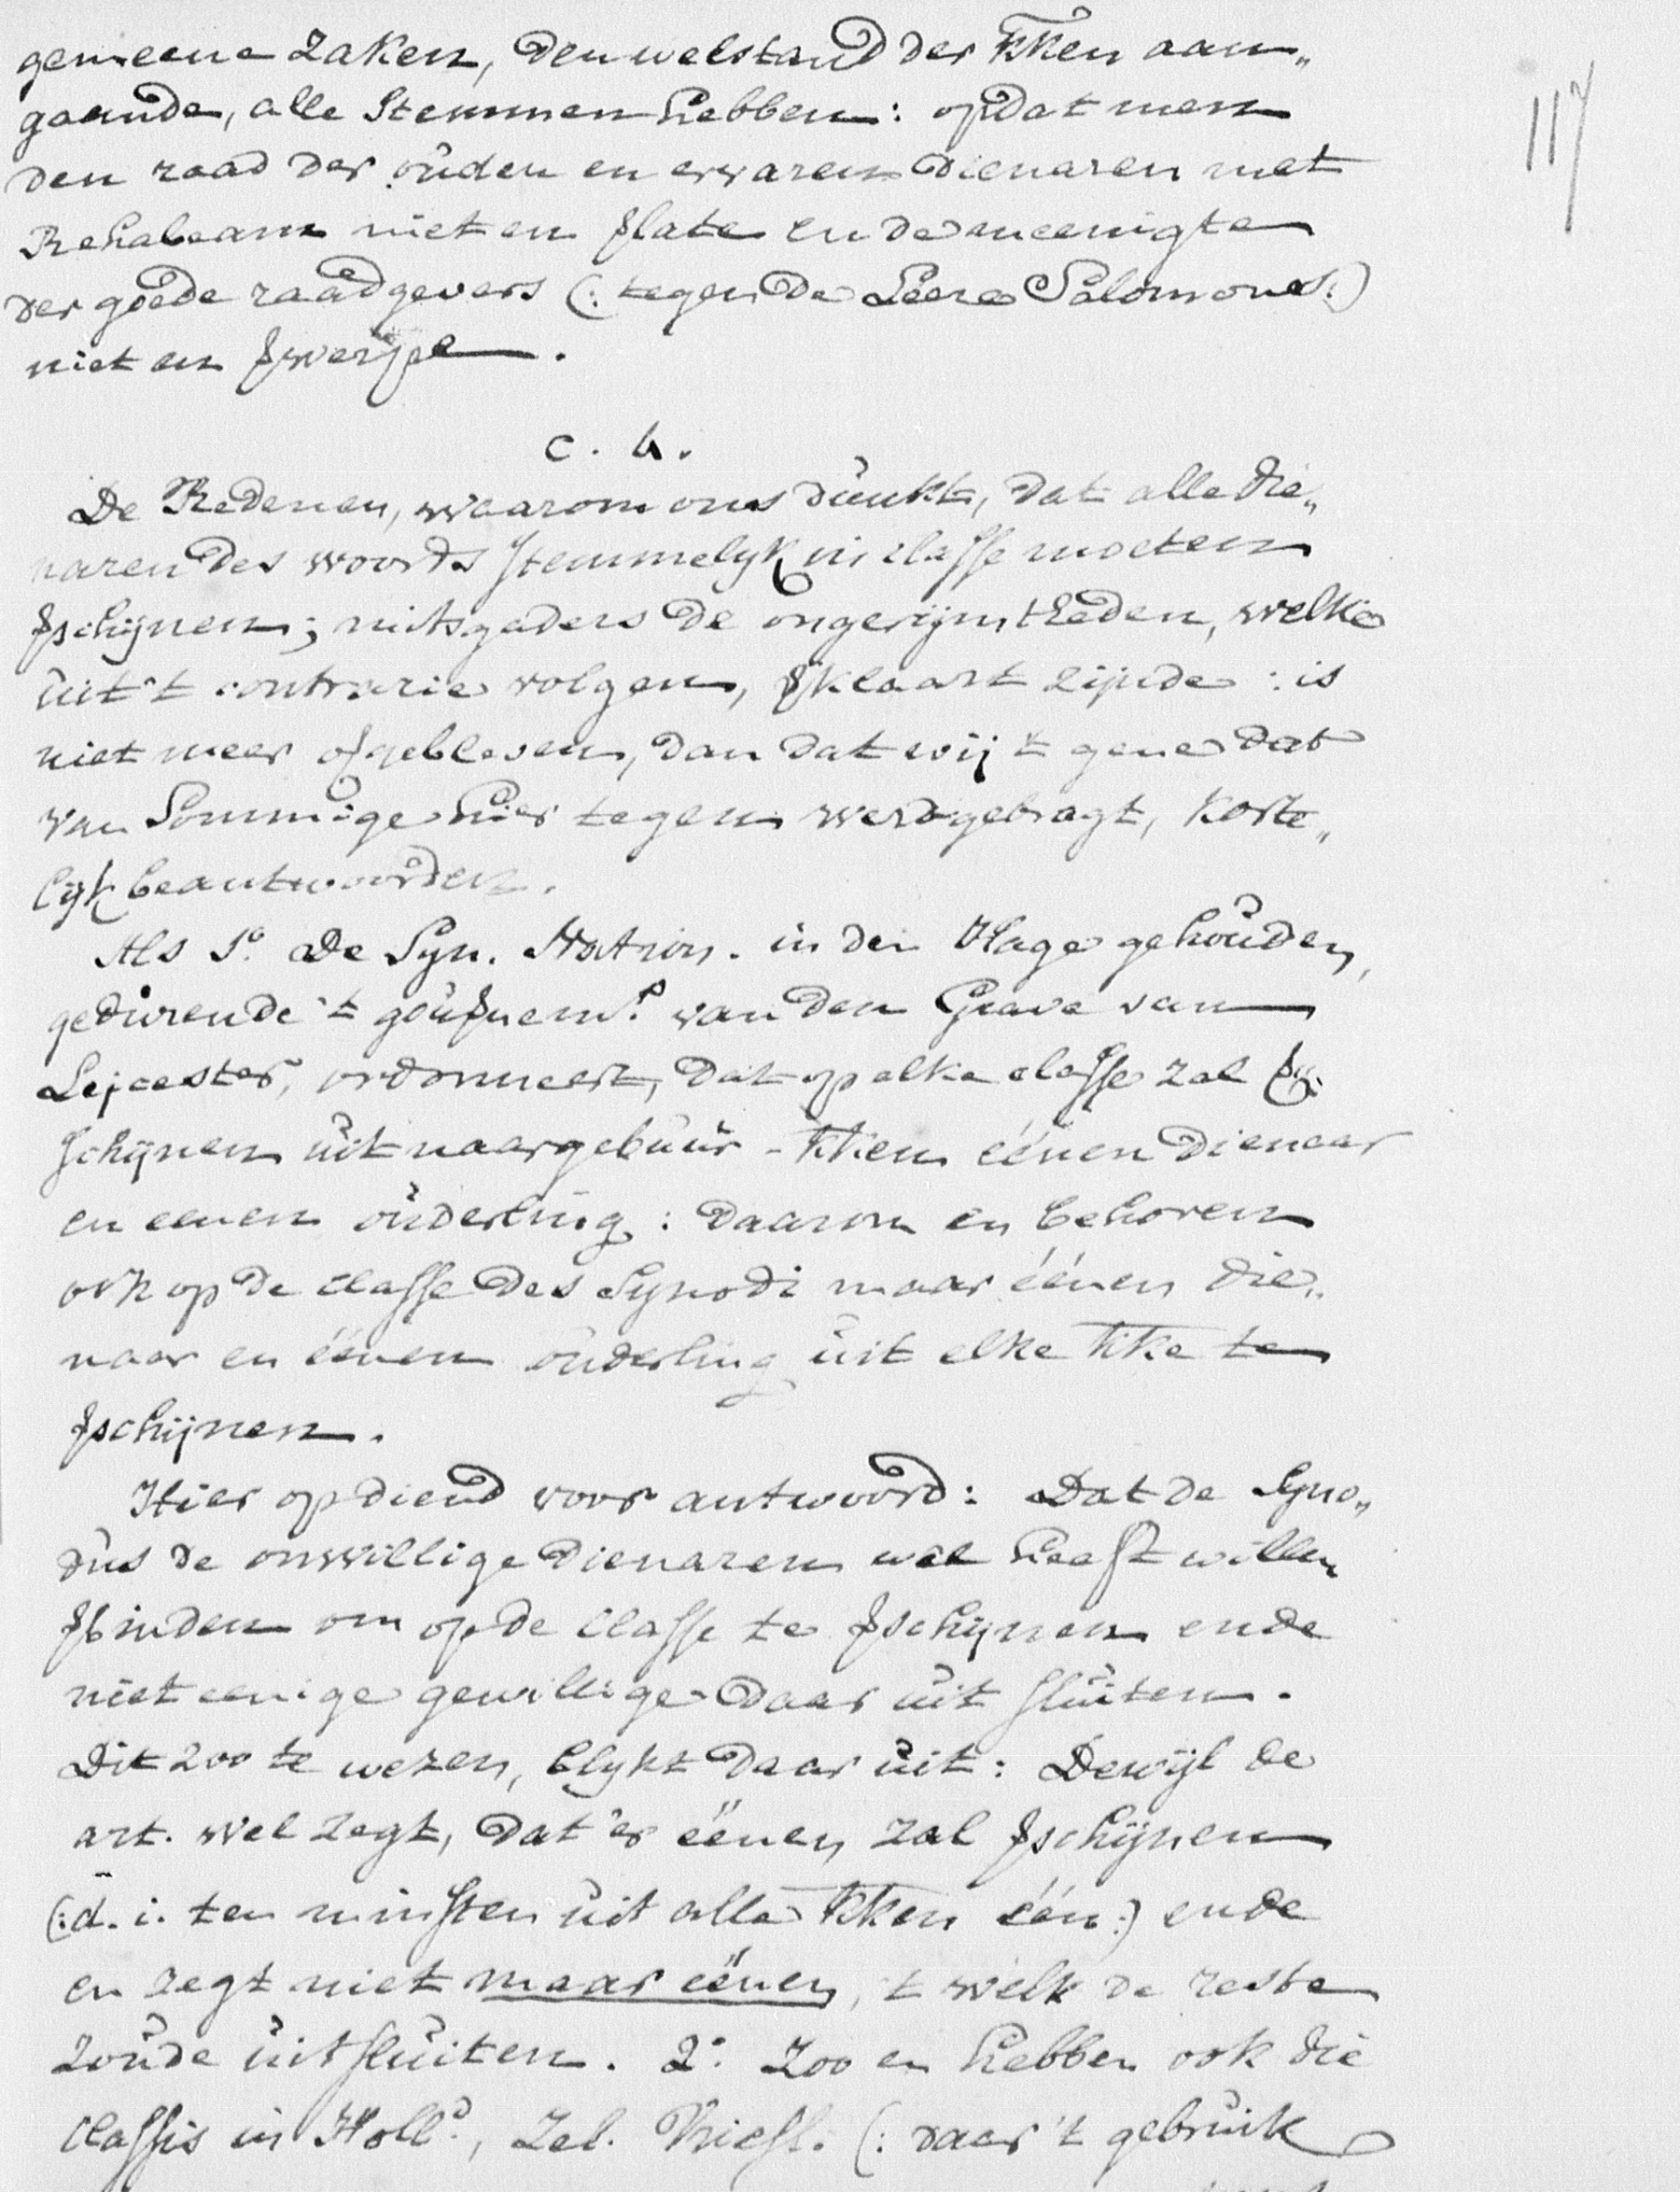 gemeene zaken, den welstand der kken aan„
gaande, alle stemmen hebben: opdat men
den raad der ouden en ervaren dienaren met
Rehabeam niet en vlate en de meenigte
der goede raadgevers (: tegen de Leere Salomons:)
niet en vwerpe.
c. 4.
De Redenen, waarom ons dunkt, dat alle die„
naren des woords stemmelyk in classe moeten
vschijnen; mitsgaders de ongerijmtheden, welke
uit 't contrarie volgen, vklaart zijnde: is
niet meer ovgebleven, dan dat wij 't gene dat
van Sommige hier tegen werd gebragt, korte„
lijk beantwoorden.
Als 1o. De Syn. Nation. in den Hage gehouden,
gedurende 't gouvnemt. van den Grave van
Leicester, ordonneert, dat op elke classe zal v:
schijnen uit naargebuur-kken éénen dienaar
en eenen ouderling: daarom en behoren
ook op de classe des Synodi maar éénen die„
naar en éénen ouderling uit elke kke te
vschijnen.
Hier op diend voor antwoord: Dat de Syno„
dus de onwillige dienaren wel heeft willen
vbinden om op de classe te vschijnen ende
niet eenige gewillige daar uit sluiten.
Dit zoo te wezen, blykt daar uit: Dewijl de
art. wel zegt, dat 'er ëënen zal vschijnen
(:d. i. ten minsten uit alle kken één:) ende
en zegt niet maar ëënen, 't welk de reste
zoude uitsluiten. 2o. Zoo en hebben ook die
Classis in Holld., Zel. Vriesl. (: daar 't gebruik
117